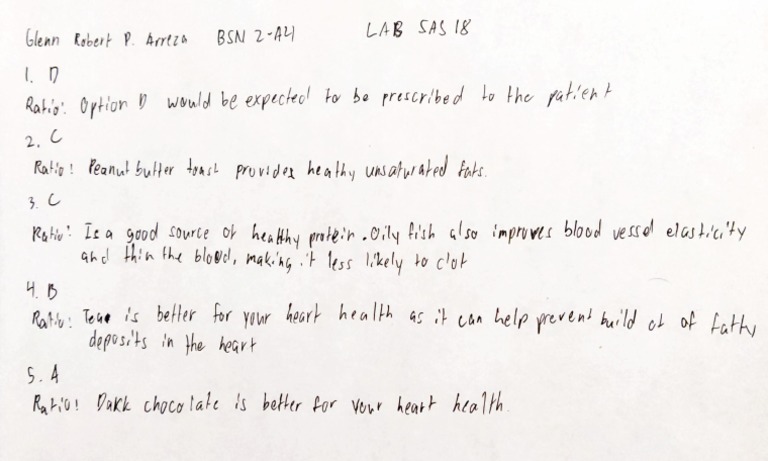 Glenn Robert P. Arreza BSN 2-A4 LAB SAS 18
1. D
Ratio: Option D would be expected to be prescribed to the patient
2. C
Ratio: Peanut butter toast provides heathy unsaturated fats.
3. C
Ratio: Is a good source of healthy protein. Oily fish also improves blood vessel elasticity
and thin the blood, making it less likely to clot
4. B
Ratio: is better for your heart health as it can help prevent build of fatty
deposits in the heart
5. A
Ratio: Dark chocolate is better for your heart health.